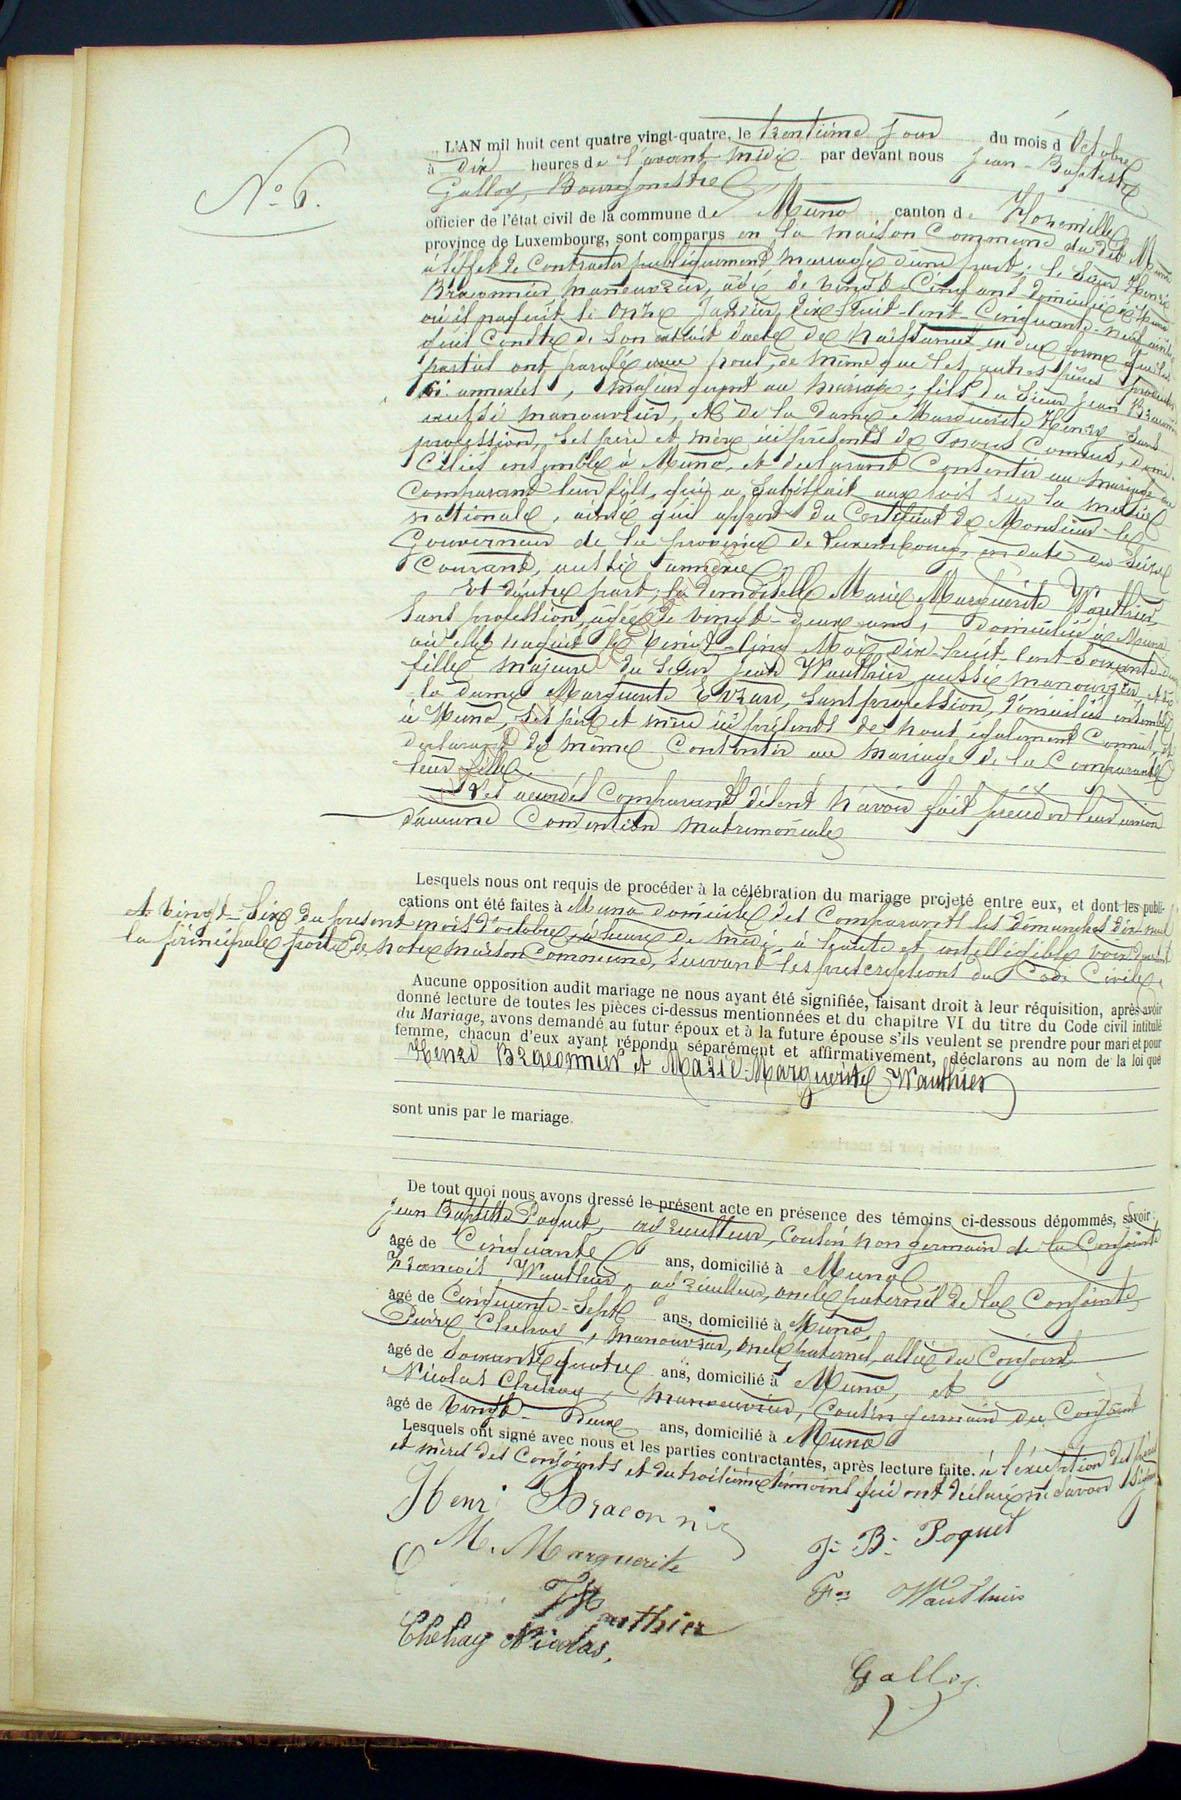 N° 6.
L'AN mil huit cent quatre vingt-quatre, le trentième jour du mois d'Octobre
à dix heures de l'avant midi par devant nous Jean-Baptiste
Galloy, Bourgmestre
officier de l'état civil de la commune de Muno canton de Florenville
province de Luxembourg, sont comparus en la maison Commune du dit Muno
à l'effet de Contracter publiquement mariage d'une part: le Sieur Henri
Braconnier manouvrier, âgé de vingt-Cinq ans domicilié à Muno
où il naquit le onze Janvier dix-huit-Cent-Cinquante-neuf, ainsi
qu'il Conste de Son extrait d'acte de naissance en due forme que les
parties ont paraphé pour, de même que les autres pièces produites
ci annexées, majeur quant au mariage; fils du Sieur Jean Braconnier
aussi manouvrier, et de la dame Marguerite Henry Sans
profession, Ses père et mère ici présents de nous Connus, domi-
ciliés ensemble à Muno, et déclarant Consentir au mariage du
Comparant leur fils, qui a Satisfait aux lois sur la milice
nationale, ainsi qu'il appert du Certificat de Monsieur le
Gouverneur de la province de Luxembourg, en date du seize
Courant, aussi annexé.
Et d'autre part, la demoiselle Marie Marguerite Wauthier
Sans profession, âgée de vingt-deux ans, domiciliée à Muno
où elle naquit le vingt-cinq Mai dix-huit-Cent Soixante-deux
fille majeure du Sieur Jean Wauthier aussi manouvrier, et de
la dame Marguerite Evrard, Sans profession, domiciliés ensemble
à Muno, Ses père et mère ici présents de nous également Connus, et
déclarant de même Consentir au mariage de la Comparante
leur fille.
Les Comparants disent n'avoir fait précéder leur union
d'aucune Convention matrimoniale
Lesquels nous ont requis de procéder à la célébration du mariage projeté entre eux, et dont les publi-
cations ont été faites à Muno domicile des Comparants les dimanches dix-neuf
et vingt-Six du présent mois d'octobre, à heure de midi, à haute et intelligible voix devant
la principale porte de notre maison Commune, suivant les prescriptions du Code Civil.
Aucune opposition audit mariage ne nous ayant été signifiée, faisant droit à leur réquisition, après avoir
donné lecture de toutes les pièces ci-dessus mentionnées et du chapitre VI du titre du Code civil intitulé
du Mariage, avons demandé au futur époux et à la future épouse s'ils veulent se prendre pour mari et pour
femme, chacun d'eux ayant répondu séparément et affirmativement, déclarons au nom de la loi que
Henri Braconnier et Marie-Marguerite Wauthier
sont unis par le mariage.
De tout quoi nous avons dressé le présent acte en présence des témoins ci-dessous dénommés, savoir:
Jean Baptiste Poquet, agriculteur, Cousin non germain de la Conjointe
âgé de Cinquante ans, domicilié à Muno
François Wauthier, agriculteur, oncle paternel de la Conjointe
âgé de Cinquante-Sept ans, domicilié à Muno,
Pierre Chehay, manouvrier, oncle paternel, allié du Conjoint
âgé de Soixante quatre ans, domicilié à Muno, et
Nicolas Chehay, manouvrier, Cousin germain du Conjoint
âgé de vingt-Deux ans, domicilié à Muno
Lesquels ont signé avec nous et les parties contractantes, après lecture faite. à l'exception des pères
et mères des Conjoints et du troisième témoin qui ont déclaré ne savoir signer
Henri Braconnier
M. Marguerite
Wauthier
Chehay Nicolas,
J. B. Poquet
Fois Wauthier
Galloy